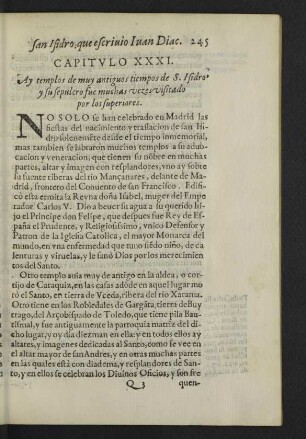 san Isidro, que escriuio Iuan Diac. 245
CAPITVLO XXXI.
Ay templos de muy antiguos tiempos de S. Isidro
y su sepulcro fue muchas vezes visitado
por los superiores.
NO SOLO se han celebrado en Madrid las
fiestas del nacimiento y traslacion de san Isi-
dro solenemēte desde el tiempo inmemorial,
mas tambien se labraron muchos templos a su aduo-
cacion y veneracion, que tienen su nōbre en muchas
partes, altar y imagen con resplandores, vno ay sobre
la fuente riberas del rio Mançanares, delante de Ma-
drid, frontero del Conuento de san Francisco. Edifi-
cò esta ermita la Reyna doña Isabel, muger del Empe-
tador Carlos V. Dio a beuer su agua a su querido hi-
jo el Principe don Felipe, que despues fue Rey de Es-
paña el Prudente, y Religiosissimo, vnico Defensor y
Patron de la Iglesia Catolica, el mayor Monarca del
mundo, en vna enfermedad que tuuo siēdo niño, de ca-
lenturas y viruelas, y le sanò Dios por los merecimien-
tos del Santo.
Otro templo auia muy de antigo en la aldea, o cor-
tijo de Caraquia, en las casas adōde en aquel lugar mo
rò el Santo, en tierra de Vceda, ribera del rio Xarama.
Otro tiene en los Robledales de Gargāta, tierra de Buy
trago, del Arçobispado de Toledo, que tiene pila Bau-
tismal, y fue antiguamente la parroquia matriz del di-
cho lugar, y oy dia diezman en ella: y en todos ellos ay
altares, y imagenes dedicadas al Santo, como se vee en
el altar mayor de san Andres, y en otras muchas partes
en las quales està con diadema, y resplandores de San-
to, y en ellos se celebran los Diuinos Oficios, y son fre
Q 3 quen-